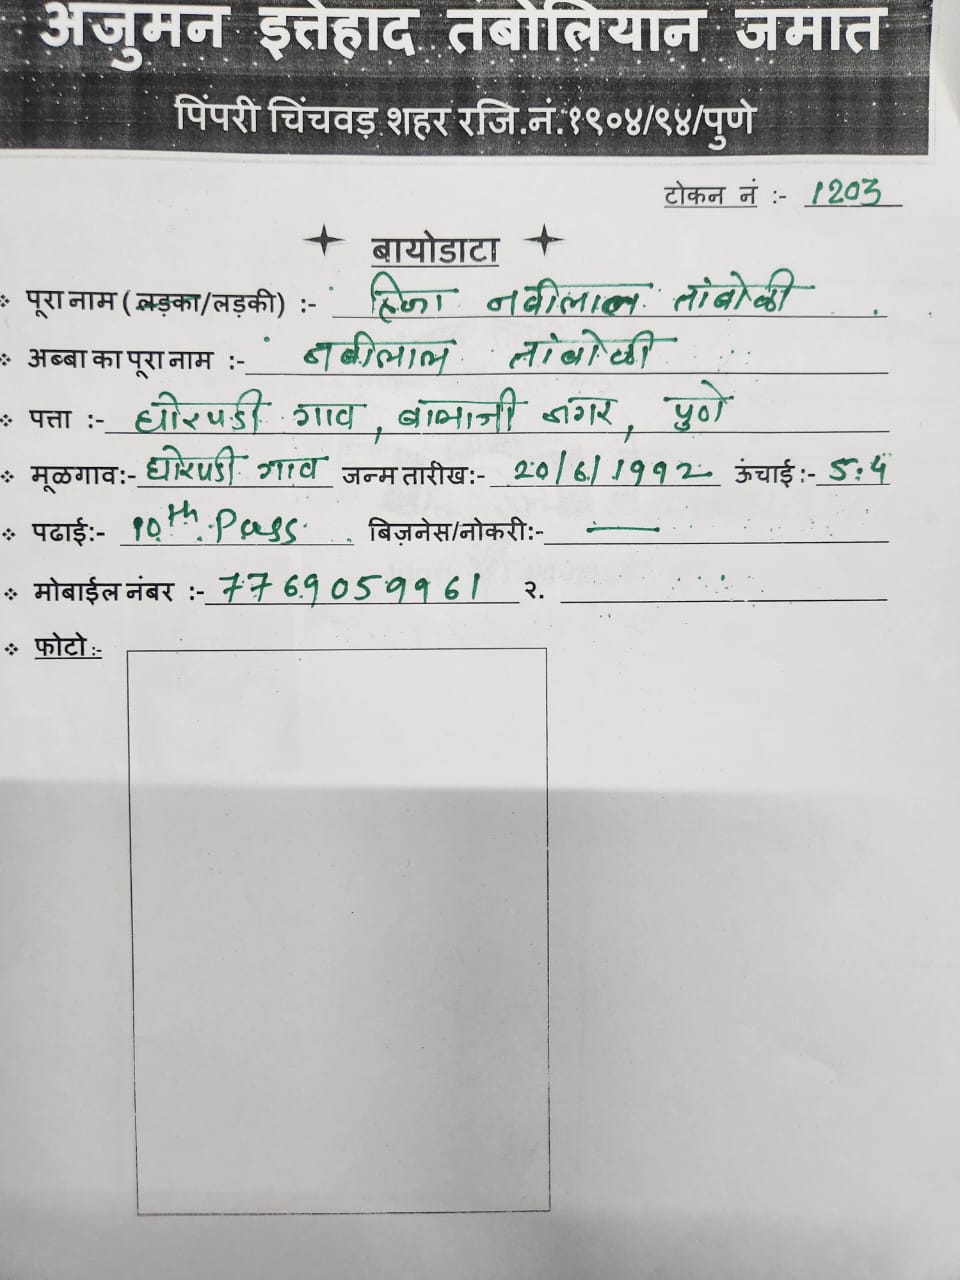 अजुमन इत्तेहाद तंबोलियान जमात
पिंपरी चिंचवड़ शहर रजि.नं.१९०४/९४/पुणे
टोकन नं :- 1203
बायोडाटा
पूरा नाम (लड़का/लड़की) :- हिना नबीलाल तांबोळी
अब्बा का पूरा नाम :- नबीलाल तांबोळी
पत्ता :- घोरपडी गाव, बालाजी नगर, पुणे
मूळगाव:- घोरपडी गाव जन्म तारीख:- 20/6/1992 ऊंचाई:- 5.4
पढाई:- 10th Pass बिज़नेस/नोकरी:- —
मोबाईल नंबर :- 7769059961 २.
फोटो :-